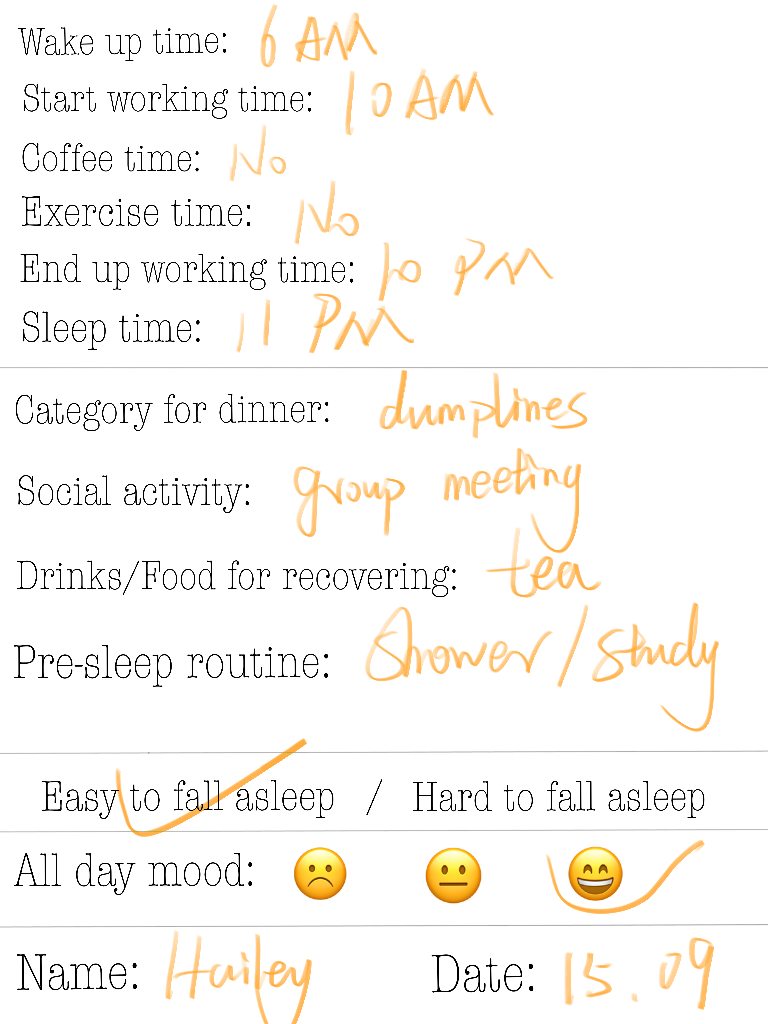 Wake up time: 6 AM
Start working time: 10 AM
Coffee time: No
Exercise time: No
End up working time: 10 PM
Sleep time: 11 PM
Category for dinner: dumplines
Social activity: group meeting
Drinks/Food for recovering: tea
Pre-sleep routine: Shower/study
Easy to fall asleep / Hard to fall asleep
All day mood: ☹️ 😐 😄
Name: Hailey Date: 15.09